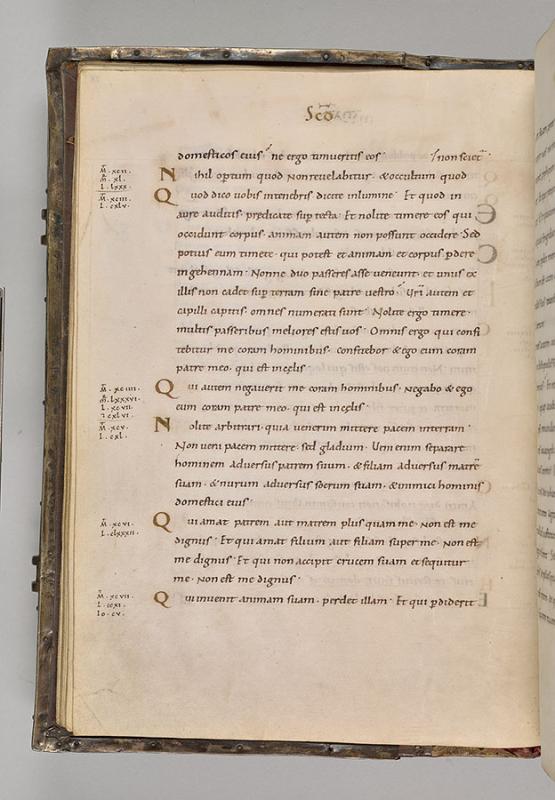 Scd̄
domesticos eius · ne ergo timueritis eos · non sciet̄
M̄. xcii.
m̄. xl.
L. lxxx.
Nihil optum quod non revelabitur · & occultum quod
M̄. xciii.
L. cxlv.
Quod dico vobis intenebris dicite inlumine · Et quod in
aure auditis · predicate sup tecta · Et nolite timere eos qui
occidunt corpus · animam autem non possunt occidere · Sed
potius eum timete · qui potest et animam et corpus pdere
ingehennam · Nonne duo passeres asse veneunt · et unus ex
illis non cadet sup terram sine patre vestro · Vr̄i autem et
capilli capitis · omnes numerati sunt · Nolite ergo timere ·
multis passeribus meliores estis vos · Omnis ergo qui confi
tebitur me coram hominibus · confitebor & ego eum coram
patre meo · qui est incęlis ·
M̄. xciiii.
m̄. lxxxvi.
L. xcvii.
L. cxlvi.
Qui autem negaverit me coram hominibus · Negabo & ego
eum coram patre meo · qui est incęlis ·
M̄. xcv.
L. cxl.
Nolite arbitrari · quia venerim mittere pacem interram ·
Non veni pacem mittere · sed gladium · Veni enim separare
hominem adversus patrem suum · & filiam adversus matrē
suam · & nurum adversus socrum suam · & inimici hominis
domestici eius ·
M̄. xcvi.
L. clxxxii.
Qui amat patrem aut matrem plus quam me · Non est me
dignus · Et qui amat filium aut filiam super me · Non est
me dignus · Et qui non accipit crucem suam et sequitur
me · Non est me dignus ·
M̄. xcvii.
L. ccxi.
Io. cv.
Qui invenit animam suam · perdet illam · Et qui pdiderit